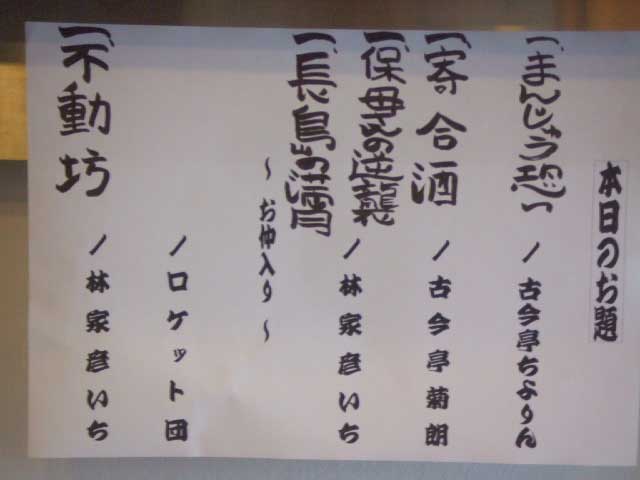 本日のお題
一、まんじゅう恐い / 古今亭ちよりん
一、寄合酒 / 古今亭菊朗
一、保母さんの逆襲
一、長島の満月 / 林家彦いち
～ お仲入り ～
/ ロケット団
一、不動坊 / 林家彦いち